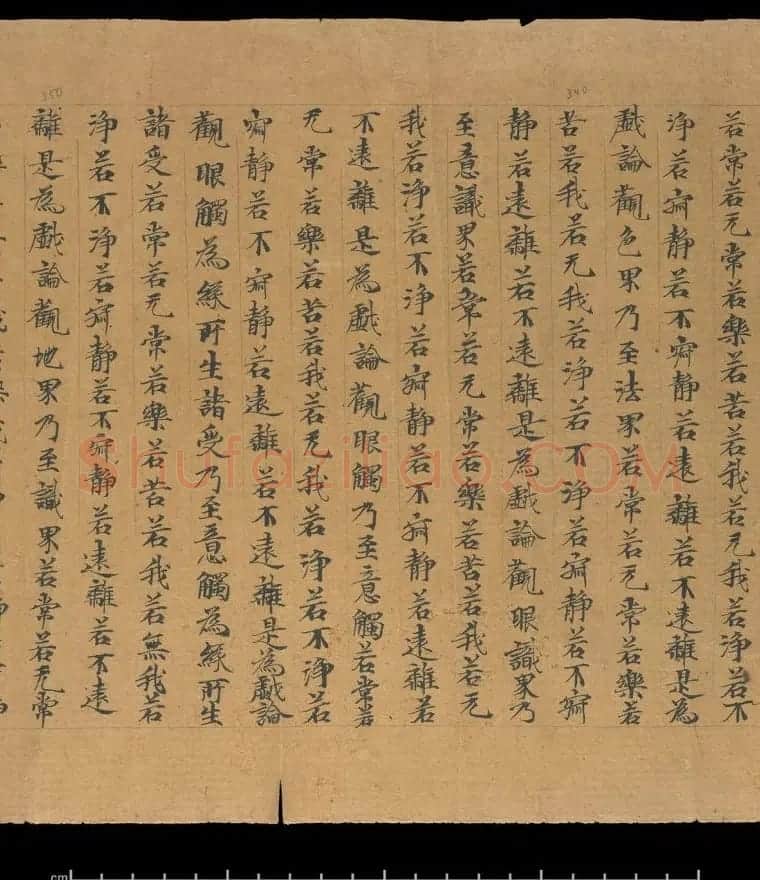 340
350
若常若无常若樂若苦若我若无我若淨若不
淨若寂靜若不寂靜若遠離若不遠離是為
戲論觀色界乃至法界若常若无常若樂若
苦若我若无我若淨若不淨若寂靜若不寂
靜若遠離若不遠離是為戲論觀眼識界乃
至意識界若常若无常若樂若苦若我若无
我若淨若不淨若寂靜若不寂靜若遠離若
不遠離是為戲論觀眼觸乃至意觸若常若
无常若樂若苦若我若无我若淨若不淨若
寂靜若不寂靜若遠離若不遠離是為戲論
觀眼觸為緣所生諸受乃至意觸為緣所生
諸受若常若无常若樂若苦若我若無我若
淨若不淨若寂靜若不寂靜若遠離若不遠
離是為戲論觀地界乃至識界若常若无常
Shufaziliao.COM
cm